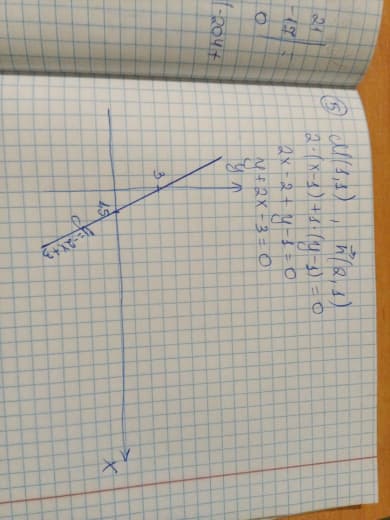 21
-17
0
-204x
⑤ M(1,1), n⃗(2,1)
2·(x-1)+1·(y-1)=0
2x-2+y-1=0
y+2x-3=0
y
3
1,5
y=-2x+3
x